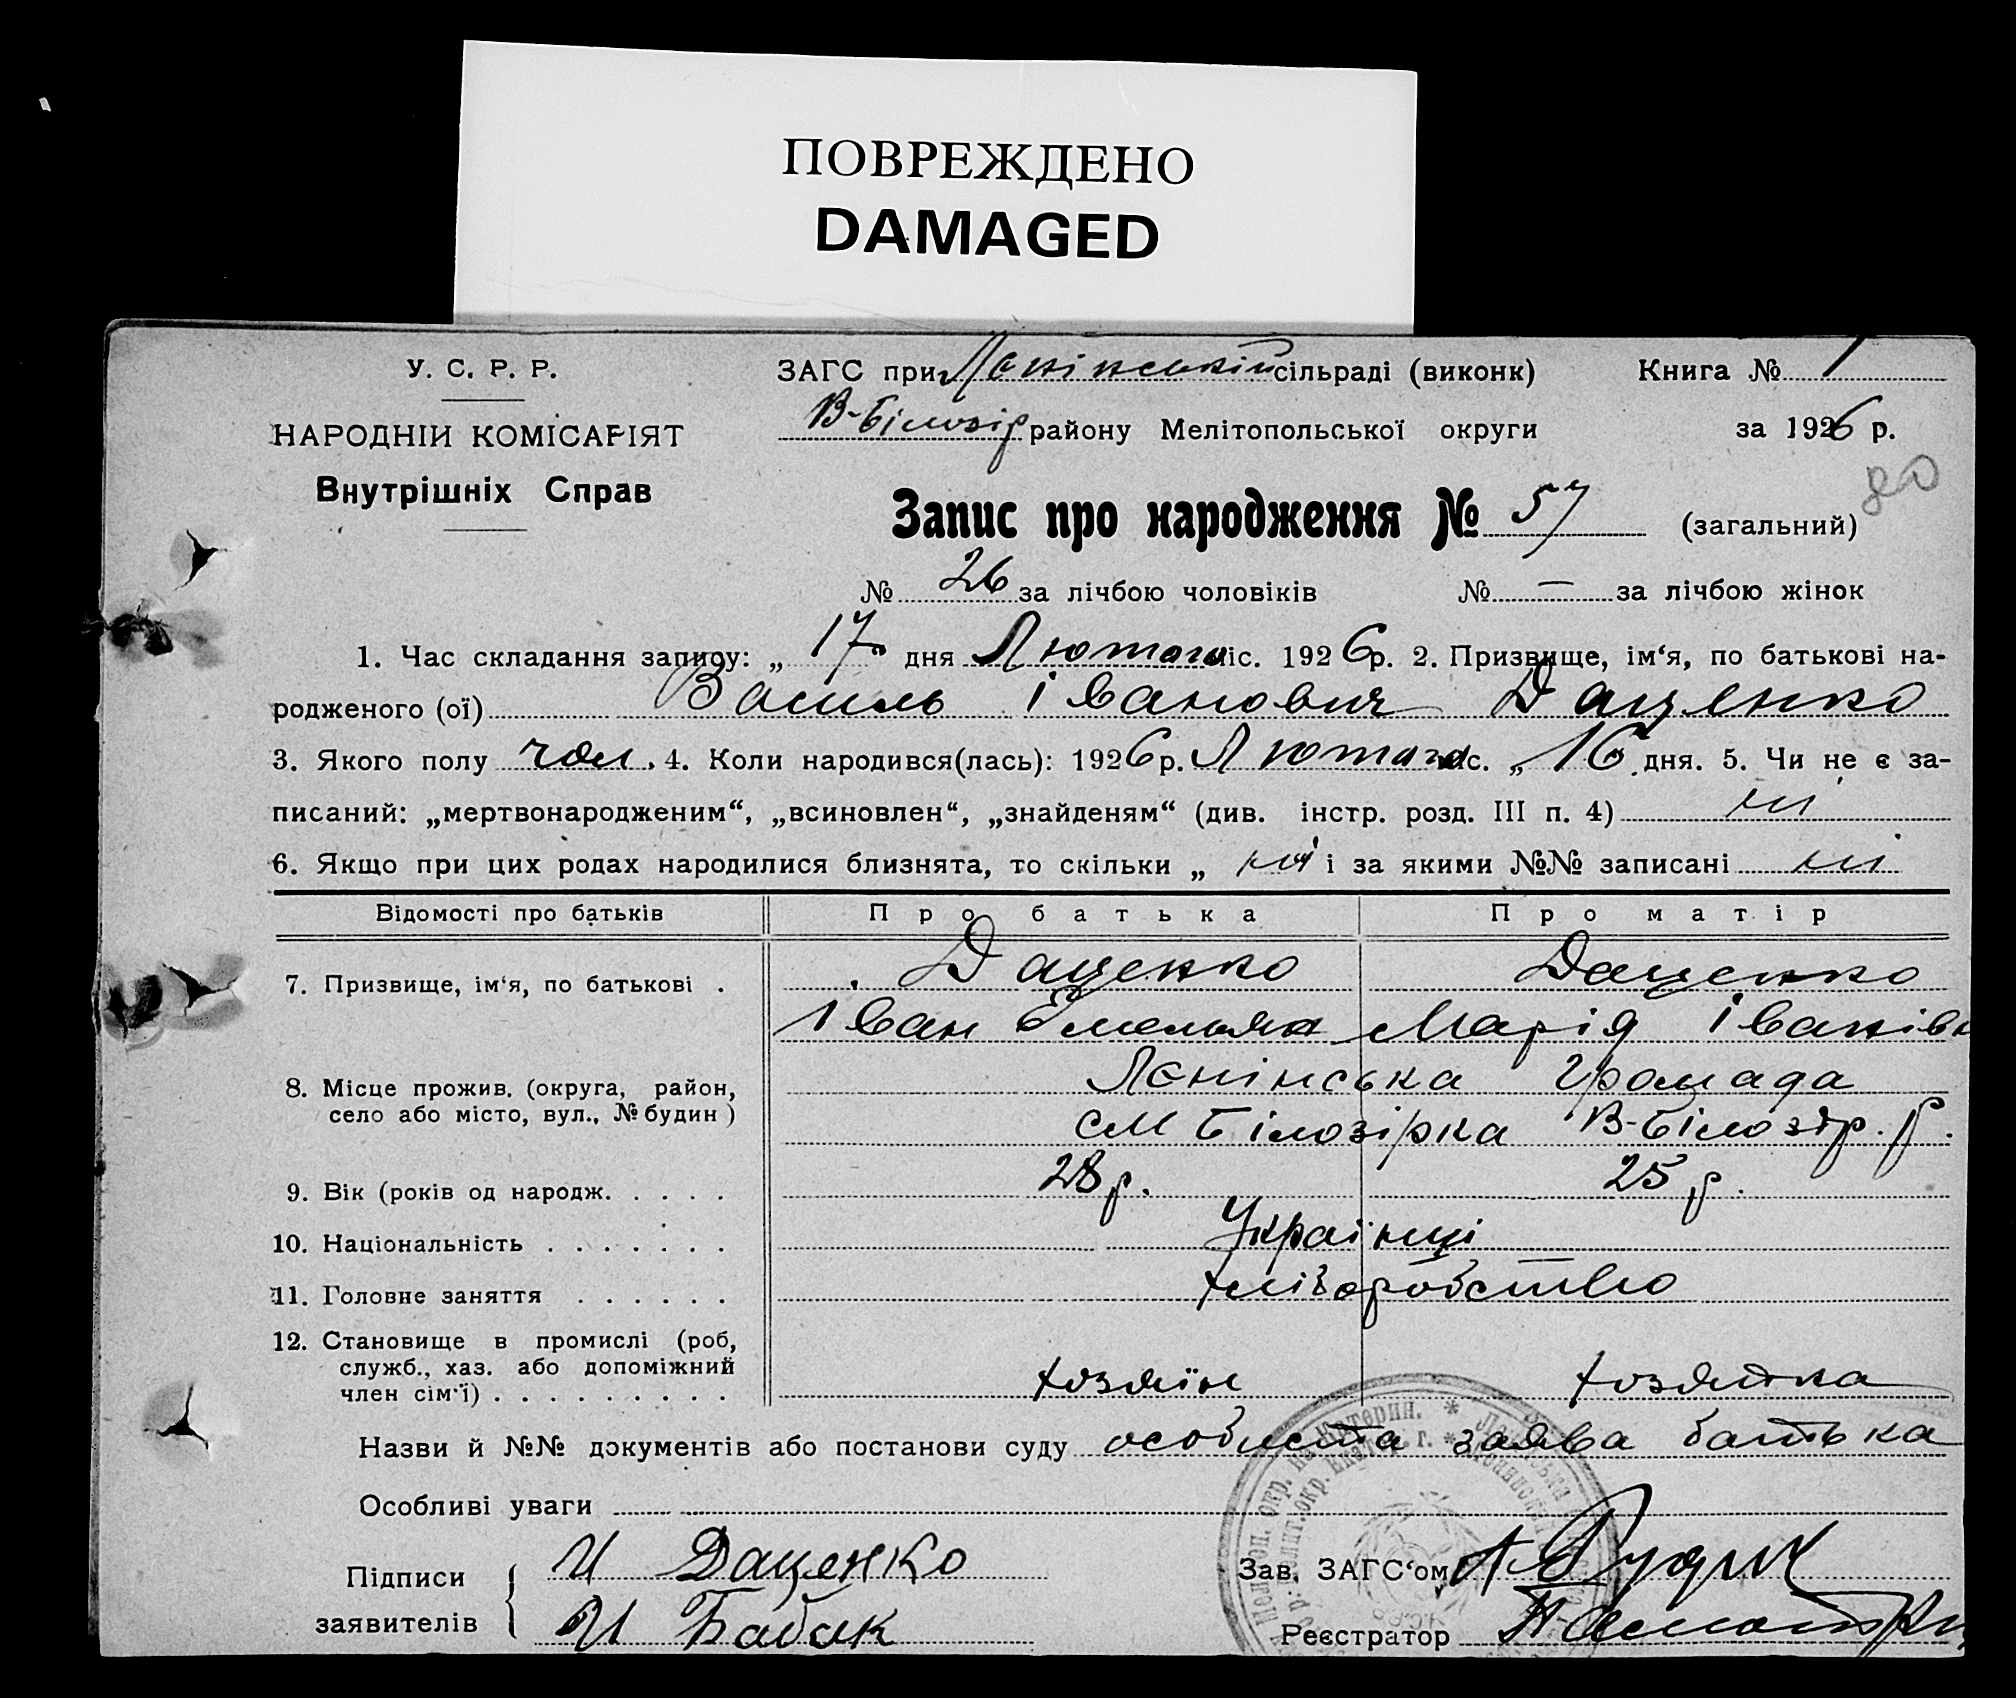 ПОВРЕЖДЕНО
DAMAGED
У. С. Р. Р.
ЗАГС при Ленінській сільраді (виконк)
Книга № 1
НАРОДНІЙ КОМІСАРІЯТ
В-Білозір району Мелітопольської округи
за 1926 р.
Внутрішніх Справ
80
Запис про народження № 57 (загальний)
№ 26 за лічбою чоловіків № — за лічбою жінок
1. Час складання запису: „ 17 " дня Лютого міс. 1926 р. 2. Призвище, ім‘я, по батькові на-
родженого (ої) Василь Іванович Даценко
3. Якого полу чол. 4. Коли народився(лась): 1926 р. Лютого міс. „ 16 дня. 5. Чи не є за-
писаний: „мертвонародженим“, „всиновлен“, „знайденям“ (див. інстр. розд. III п. 4) ні
6. Якщо при цих родах народилися близнята, то скільки „ ні і за якими №№ записані ні
Відомості про батьків
Про батька
Про матір
7. Призвище, ім‘я, по батькові .
Даценко
Даценко
Іван Омельян
Марія Іванівн
8. Місце прожив. (округа, район,
село або місто, вул., № будин )
Лєнінська Громада
см Білозірка В-Білозір. р.
9. Вік (років од народж. . . . .
28 р.
25 р.
10. Національність . . . . . . .
Українці
11. Головне заняття . . . . . .
хліборобство
12. Становище в промислі (роб,
служб., хаз. або допоміжний
член сім‘ї) . . . . . . . . .
хозяїн
хозяйка
Назви й №№ документів або постанови суду особиста заява батька
Особливі уваги
Підписи
заявителів
И Даценко
И Бабак
Зав. ЗАГС‘ом
Реєстратор